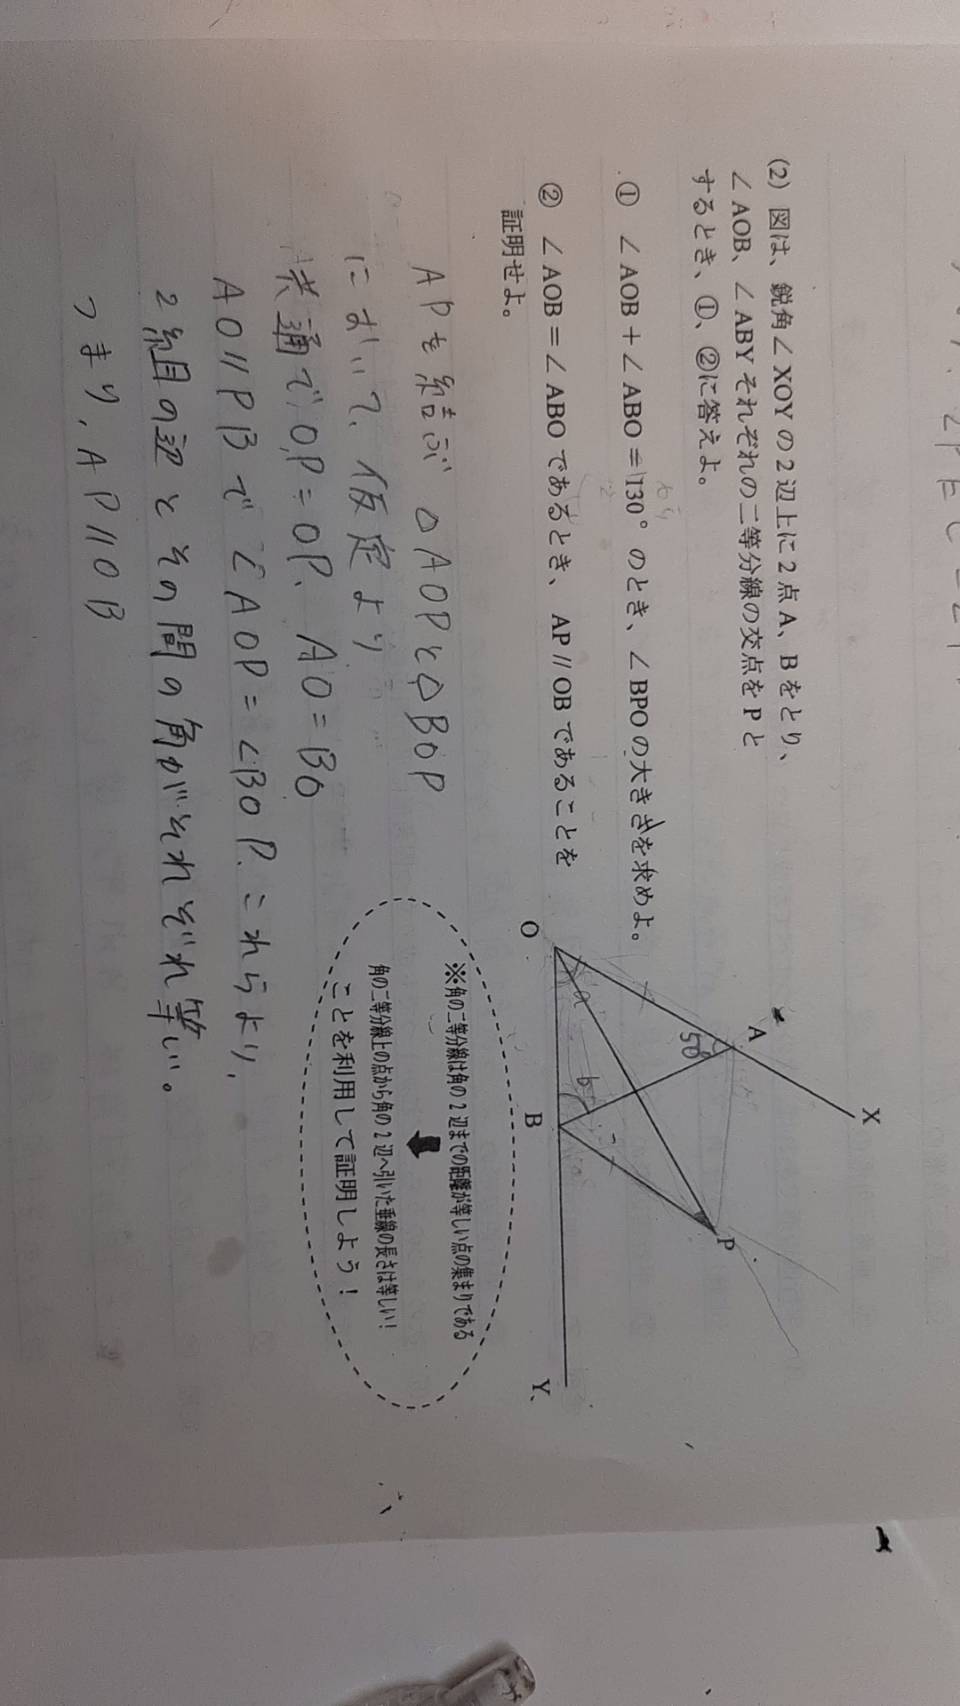 (2) 図は、鋭角∠XOYの2辺上に2点A、Bをとり、
∠AOB、∠ABYそれぞれの二等分線の交点をPと
するとき、①、②に答えよ。
① ∠AOB+∠ABO=130°のとき、∠BPOの大きさを求めよ。
② ∠AOB=∠ABOであるとき、AP//OBであることを
証明せよ。
APを結ぶ △AOPと△BOP
において、仮定より
共通で、OP=OP、AO=BO
AO//PBで∠AOP=∠BOP、これらより、
2組の辺とその間の角がそれぞれ等しい。
つまり、AP//OB
X
A
50
P
O
a
b
B
Y
※角の二等分線は角の2辺までの距離が等しい点の集まりである
角の二等分線上の点から角の2辺へ引いた垂線の長さは等しい!
ことを利用して証明しよう!